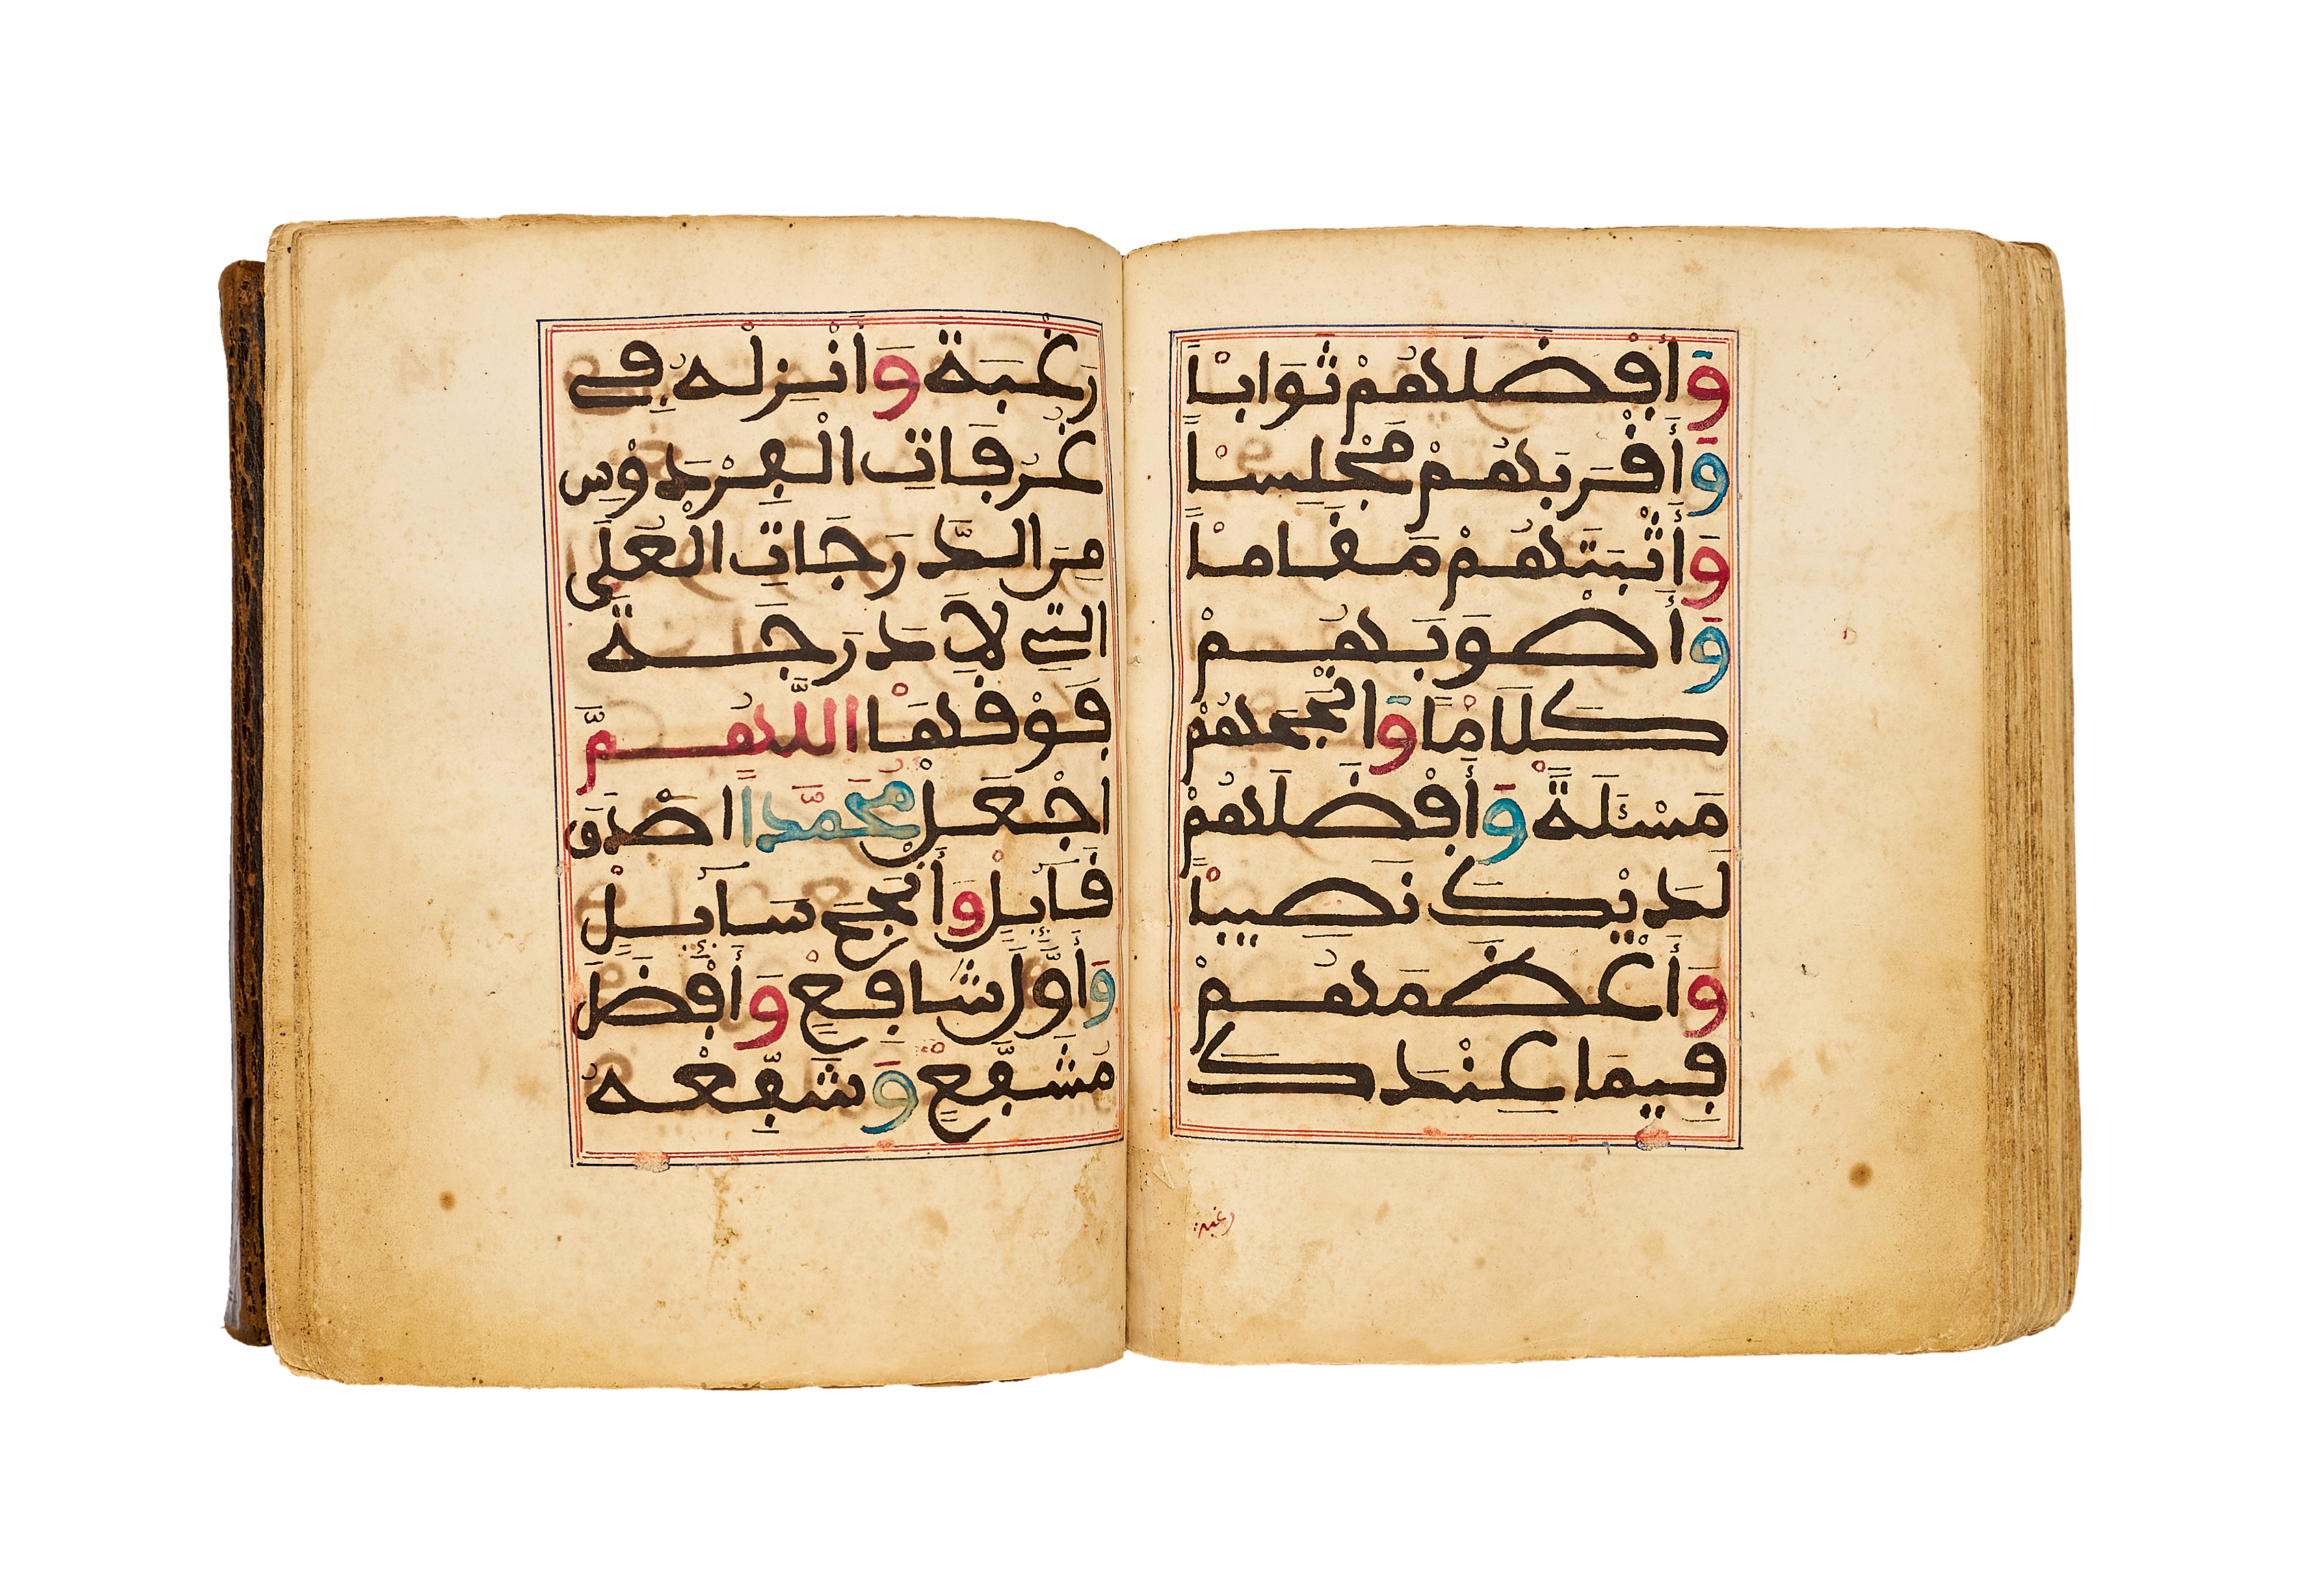 وَأَفْضَلِهُمْ ثَوَاباً
وَأَقْرَبَهُمْ مَجْلِساً
وَأَثْبَتَهُمْ مَقَاماً
وَأَصْوَبَهُمْ
كَلَاماً وَأَنْجَحَهُمْ
مَسْئَلَةً وَأَفْضَلَهُمْ
لَدَيْكَ نَصِيباً
وَأَعْظَمَهُمْ
فِيمَا عِنْدَكَ
رغبة
رَغْبَةً وَأَنْزِلْهُ فِي
غُرُفَاتِ الْفِرْدَوْسِ
مِنَ الدَّرَجَاتِ الْعُلَى
الَّتِي لَا دَرَجَةَ
فَوْقَهَا اللَّهُمَّ
اجْعَلْ مُحَمَّداً أَصْدَقَ
قَائِلٍ وَأَنْجَحَ سَائِلٍ
وَأَوَّلَ شَافِعٍ وَأَفْضَلَ
مُشَفَّعٍ وَشَفِّعْهُ